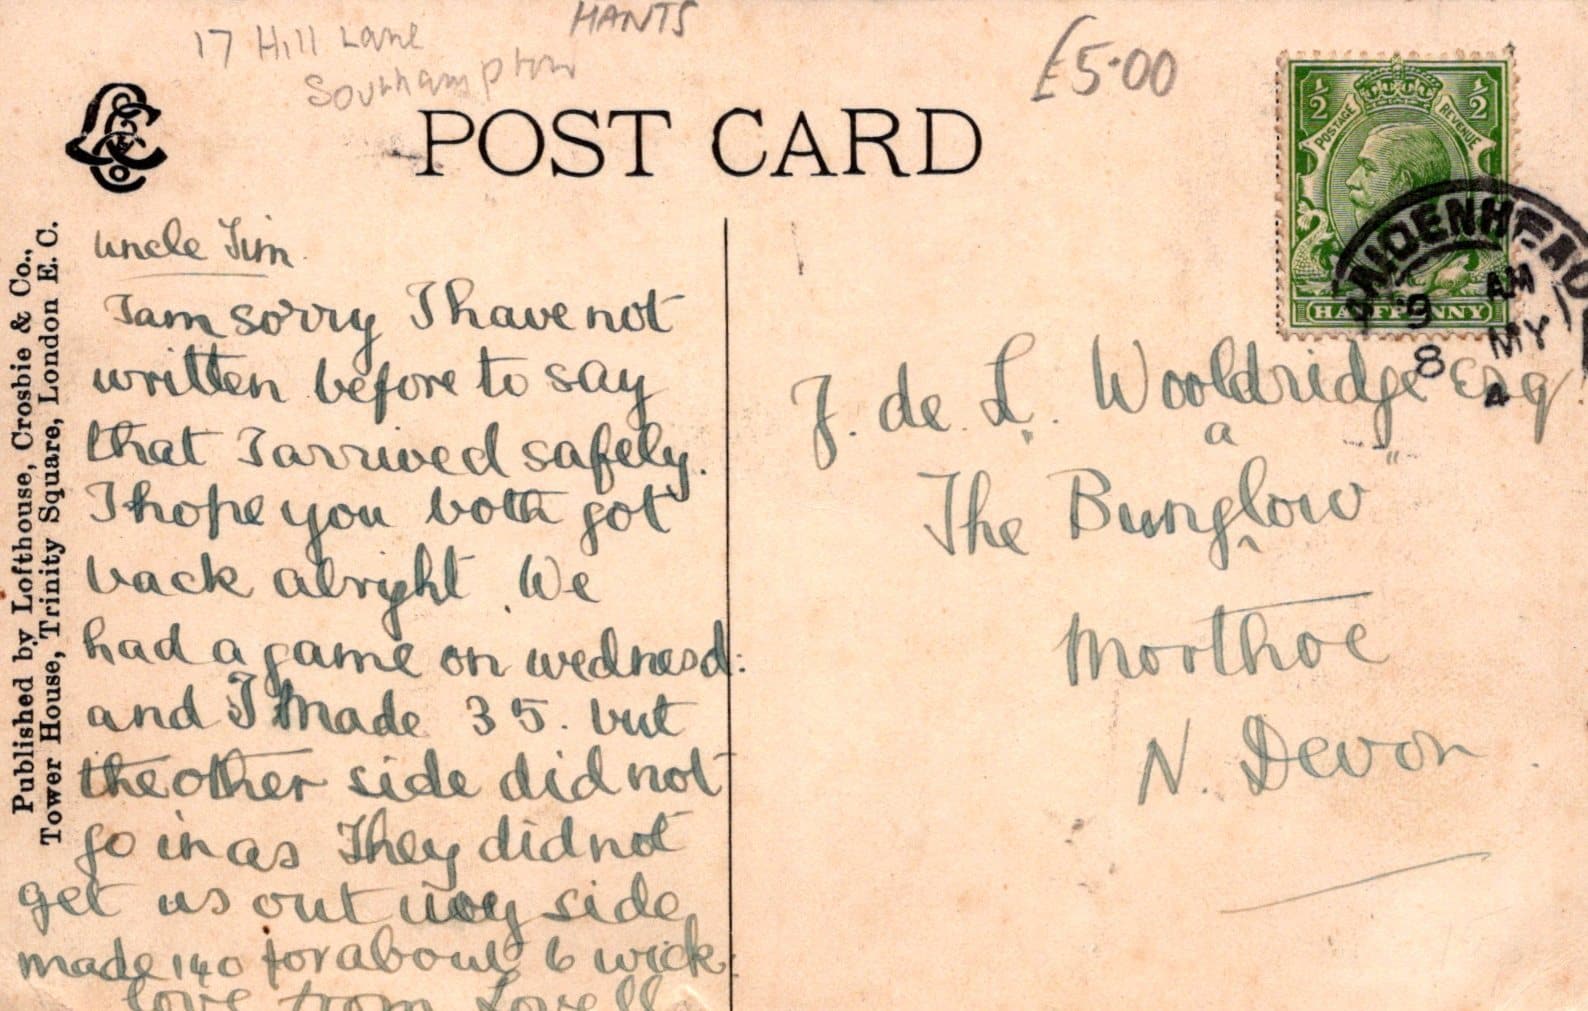 17 Hill Lane
Southampton
HANTS
£5.00
POST CARD
Published by Lofthouse, Crosbie & Co.,
Tower House, Trinity Square, London E. C.
½ ½
POSTAGE REVENUE
HALFPENNY
MAIDENHEAD
9 AM
8 MY
uncle Jim
I am sorry I have not
written before to say
that I arrived safely.
I hope you both got
back alright. We
had a game on wednesd:
and I made 35. but
the other side did not
go in as They did not
get us out side
made 140 for about 6 wick
love from Lovell
J. de L. Wooldridge Esq
a
"
The Bunglow
Morthoe
N. Devon.